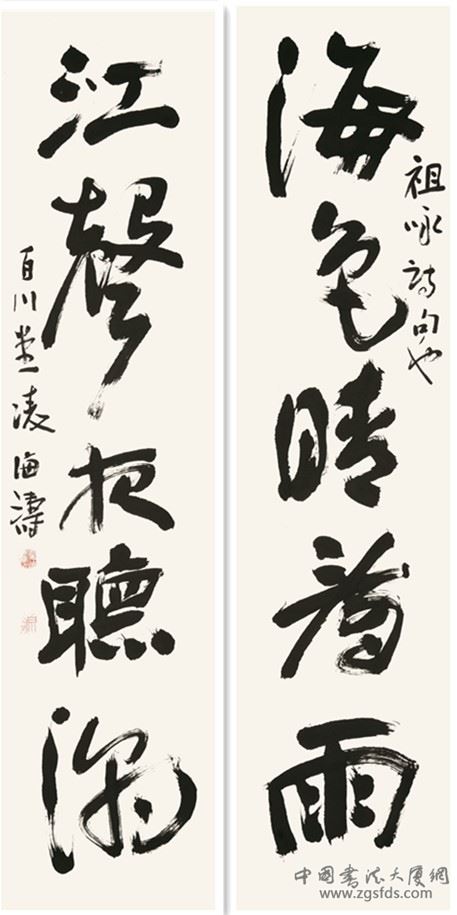 海色晴看雨
祖咏詩句也
江聲夜聽潮
百川堂凌海濤
中國書法大廈網
www.zgsfds.com